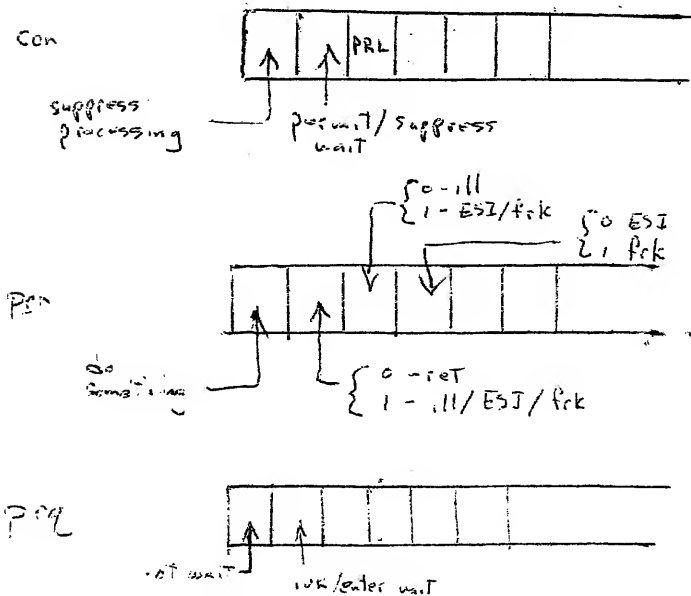 con
PRL
suppress
processing
permit/suppress
wait
0 - ill
1 - ESI/frk
0 ESI
1 frk
do
something
0 - ret
1 - ill/ESI/frk
prq
wait
/enter wait